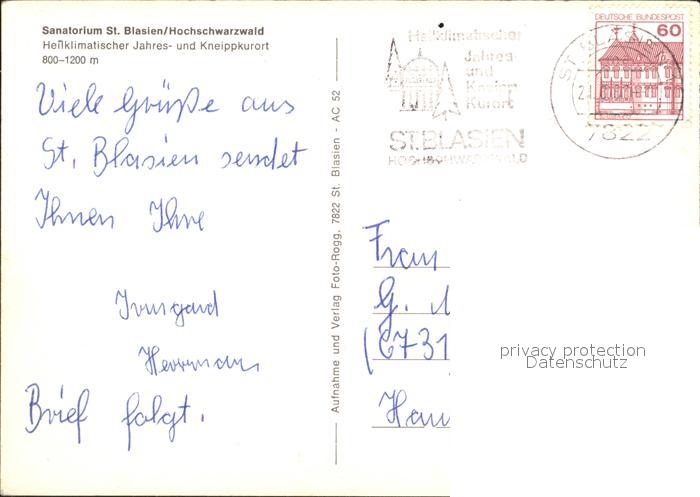 Sanatorium St. Blasien/Hochschwarzwald
Heilklimatischer Jahres- und Kneippkurort
800–1200 m
Viele Grüße aus
St. Blasien sendet
Ihnen Ihre
Irmgard
Herrmann
Brief folgt.
Aufnahme und Verlag Foto-Rogg, 7822 St. Blasien - AC 52
Heilklimatischer
Jahres-
und
Kneipp
Kurort
ST. BLASIEN
HOCHSCHWARZWALD
DEUTSCHE BUNDESPOST
60
ST. BLASIEN
7822
Frau
G.
(6731
privacy protection
Datenschutz